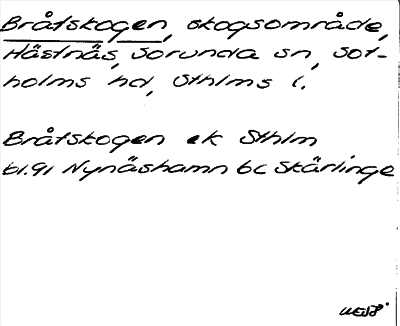 Bråtskogen, skogsområde,
Hästnäs, Sorunda sn, Sot-
holms hd, Sthlms l.
Bråtskogen ek Sthlm
bl.91 Nynäshamn bc Skärlinge